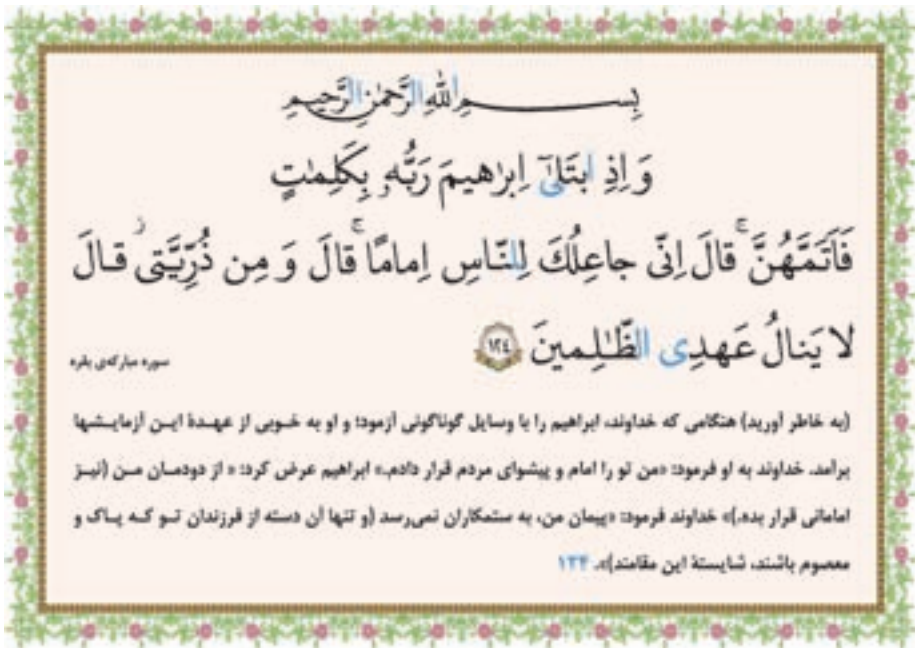 بِسمِ اللهِ الرَّحمٰنِ الرَّحیمِ
وَ اِذِ ابتَلىٰٓ اِبرٰهیمَ رَبُّه‌و بِکَلِمٰتٍ
فَاَتَمَّهُنَّ ۚ قالَ اِنّی جاعِلُکَ لِلنّاسِ اِمامًا ۚ قالَ وَ مِن ذُرِّیَّتی ۖ قالَ
لا یَنالُ عَهدِی الظّٰلِمینَ ﴿١٢٤﴾
سوره مبارکه‌ی بقره
(به خاطر آورید) هنگامی که خداوند، ابراهیم را با وسایل گوناگونی آزمود؛ و او به خوبی از عهدهٔ این آزمایشها
برآمد. خداوند به او فرمود: «من تو را امام و پیشوای مردم قرار دادم.» ابراهیم عرض کرد: « از دودمان من (نیز
امامانی قرار بده.)» خداوند فرمود: «پیمان من، به ستمکاران نمی‌رسد (و تنها آن دسته از فرزندان تو که پاک و
معصوم باشند، شایستهٔ این مقامند)». ۱۲۴